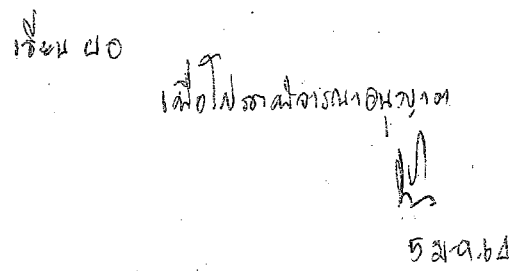 เรียน ผอ
เพื่อโปรดพิจารณาอนุญาต
5 ม.ค.